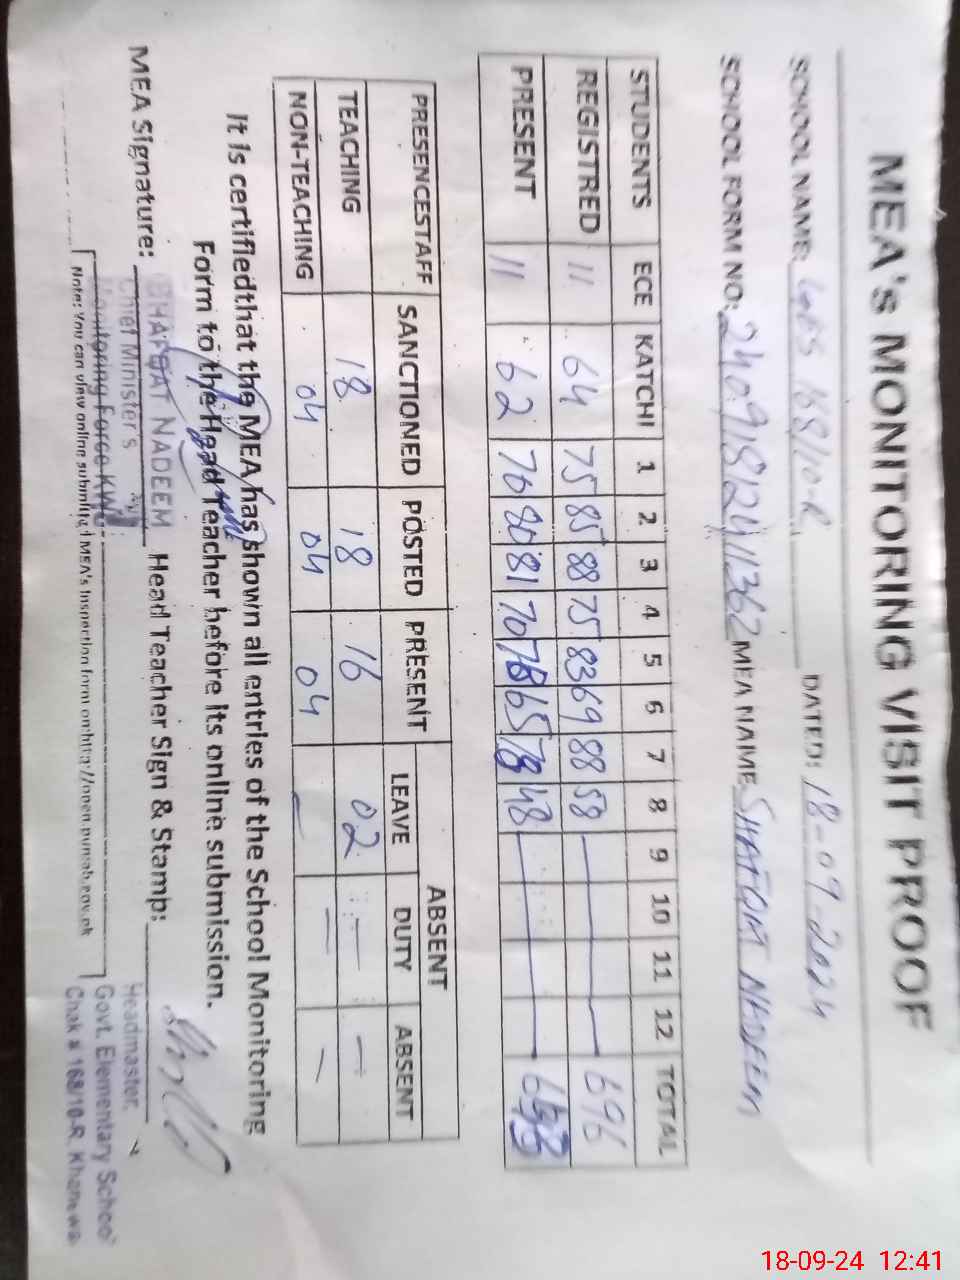 MEA's MONITORING VISIT PROOF
SCHOOL NAME: GES 168/10-R DATED: 18-09-2024
SCHOOL FORM NO: 24091812411362 MEA NAME SHAFQAT NADEEM
STUDENTS ECE KATCHI 1 2 3 4 5 6 7 8 9 10 11 12 TOTAL
REGISTRED 11 64 75 85 88 75 83 69 88 58 696
PRESENT 11 62 70 80 81 70 65 78 48
PRESENCESTAFF SANCTIONED POSTED PRESENT ABSENT
LEAVE DUTY ABSENT
TEACHING 18 18 16 02 — —
NON-TEACHING 04 04 04 — — —
It is certifiedthat the MEA has shown all entries of the School Monitoring
Form to the Head Teacher before its online submission.
MEA Signature: Head Teacher Sign & Stamp:
SHAFQAT NADEEM
Chief Minister's
Monitoring Force KWL
Headmaster,
Govt. Elementary School
Chak # 168/10-R, Khanewal
Note: You can view online submitted MEA's Inspection form on http://open.punjab.gov.pk
18-09-24 12:41